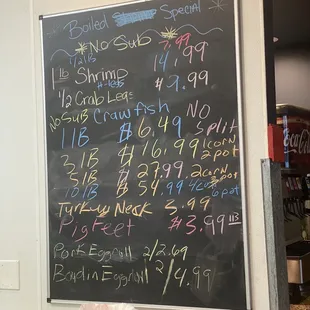 Boiled Special
No Sub 7.99
1/2 lb
1 lb Shrimp 14.99
1/2 Crab Legs 9.99
No Sub Crawfish No
1 lB $6.49 Split
3 lB $16.99 1corn 2pot
5 lB $27.99 2corn 3pot
10 lB $54.99 4corn 6pot
Turkey Neck 3.99
Pig Feet $3.99 lB
Pork Eggroll 2/2.69
Boudin Eggroll 2/4.99
Coca-Cola